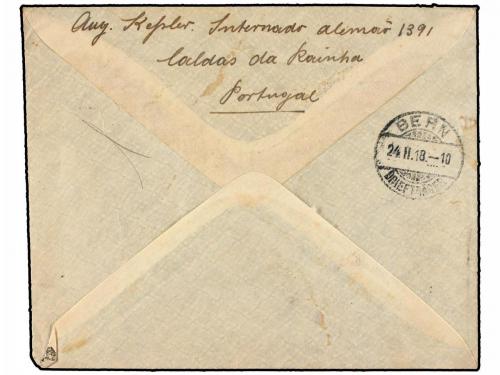 Aug. Kepler. Internado alemão 1391
Caldas da Rainha
Portugal
BERN
24.II.18.–10
BRIEFTRÄGER